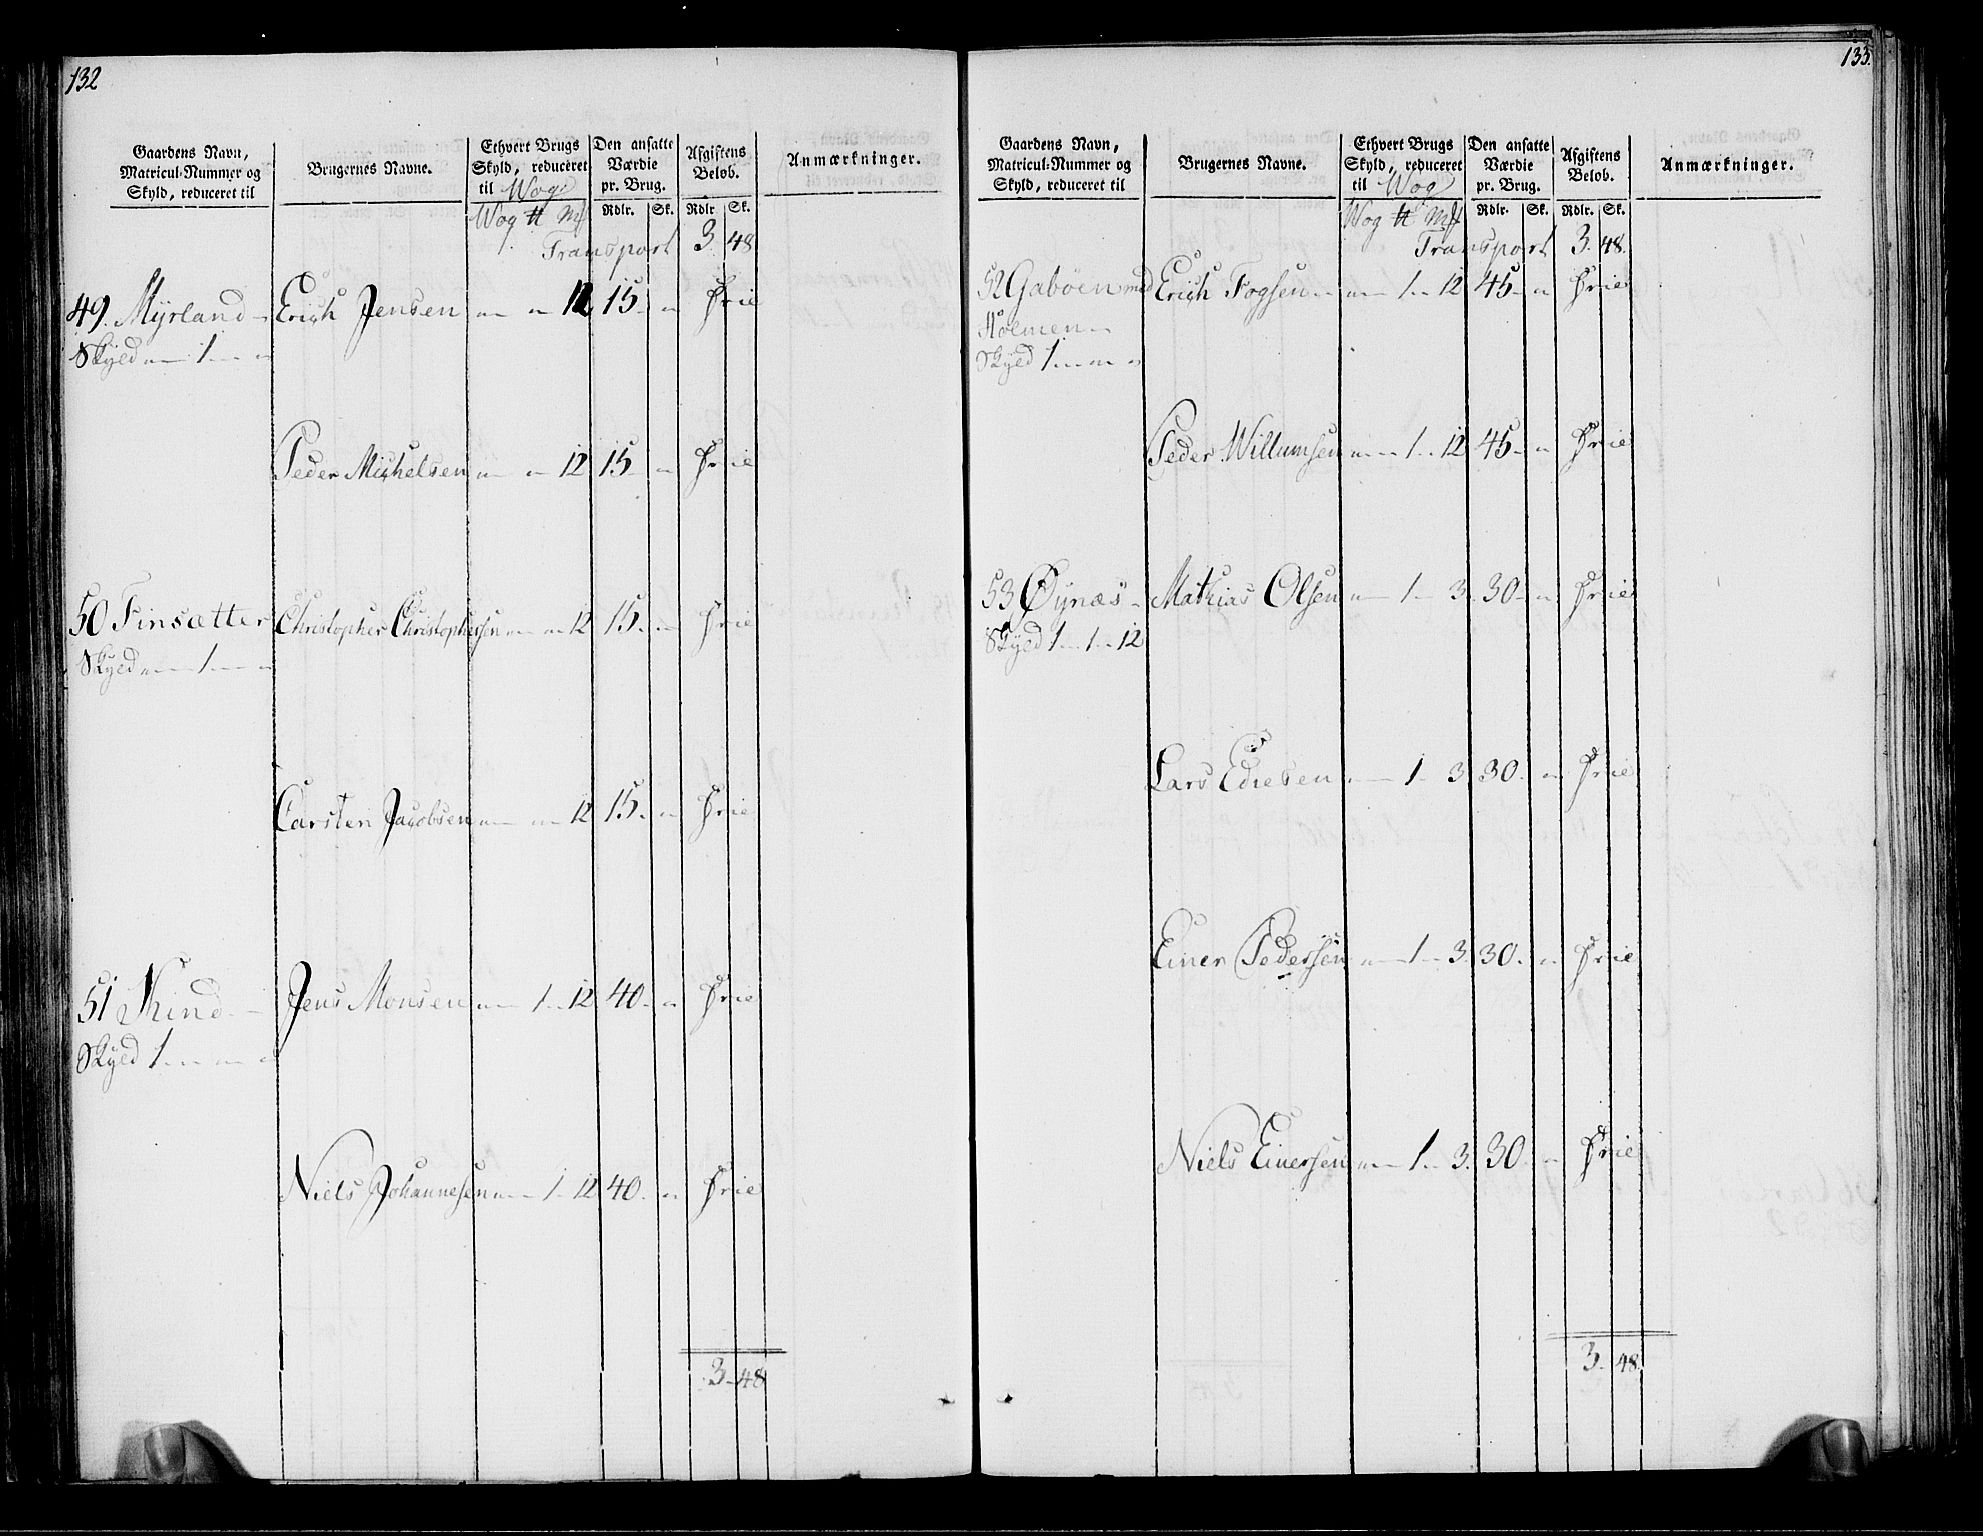 132
Gaardens Navn, Matricul-Nummer og Skyld, reduceret til | Brugernes Navne. | Ethvert Brugs Skyld, reduceret til Wog | Den ansatte Værdie pr. Brug. | Afgiftens Beløb. | Anmærkninger.
Wog ℔ Mk | Rdlr. | Sk. | Rdlr. | Sk.
Transport 3. 48
49. Myrland Erich Jensen " " 12 15. " Frie
Skyld " 1 "
Peder Michelsen " " 12 15. " Frie
50 Finsætter Christopher Christophersen " " 12 15. " Frie
Skyld " 1 "
Carsten Jacobsen " " 12 15. " Frie
51 Kind Jens Monsen " 1 " 12 40. " Frie
Skyld 1 " "
Niels Johannesen " 1 " 12 40. " Frie
3 48
133.
Gaardens Navn, Matricul-Nummer og Skyld, reduceret til | Brugernes Navne. | Ethvert Brugs Skyld, reduceret til Wog | Den ansatte Værdie pr. Brug. | Afgiftens Beløb. | Anmærkninger.
Wog ℔ Mk | Rdlr. | Sk. | Rdlr. | Sk.
Transport 3. 48.
52 Gaböen med Erich Fogsen " 1 " 12 45. " Frie
Holmen
Skyld 1 " "
Peder Willumsen " 1 " 12 45. " Frie
53 Øynæs Mathias Olsen " 1 " 3. 30. " Frie
Skyld 1 " 1 " 12
Lars Ediesen " 1 " 3. 30. " Frie
Einer Pedersen " 1 " 3. 30. " Frie
Niels Einersen " 1 " 3. 30. " Frie
3. 48.